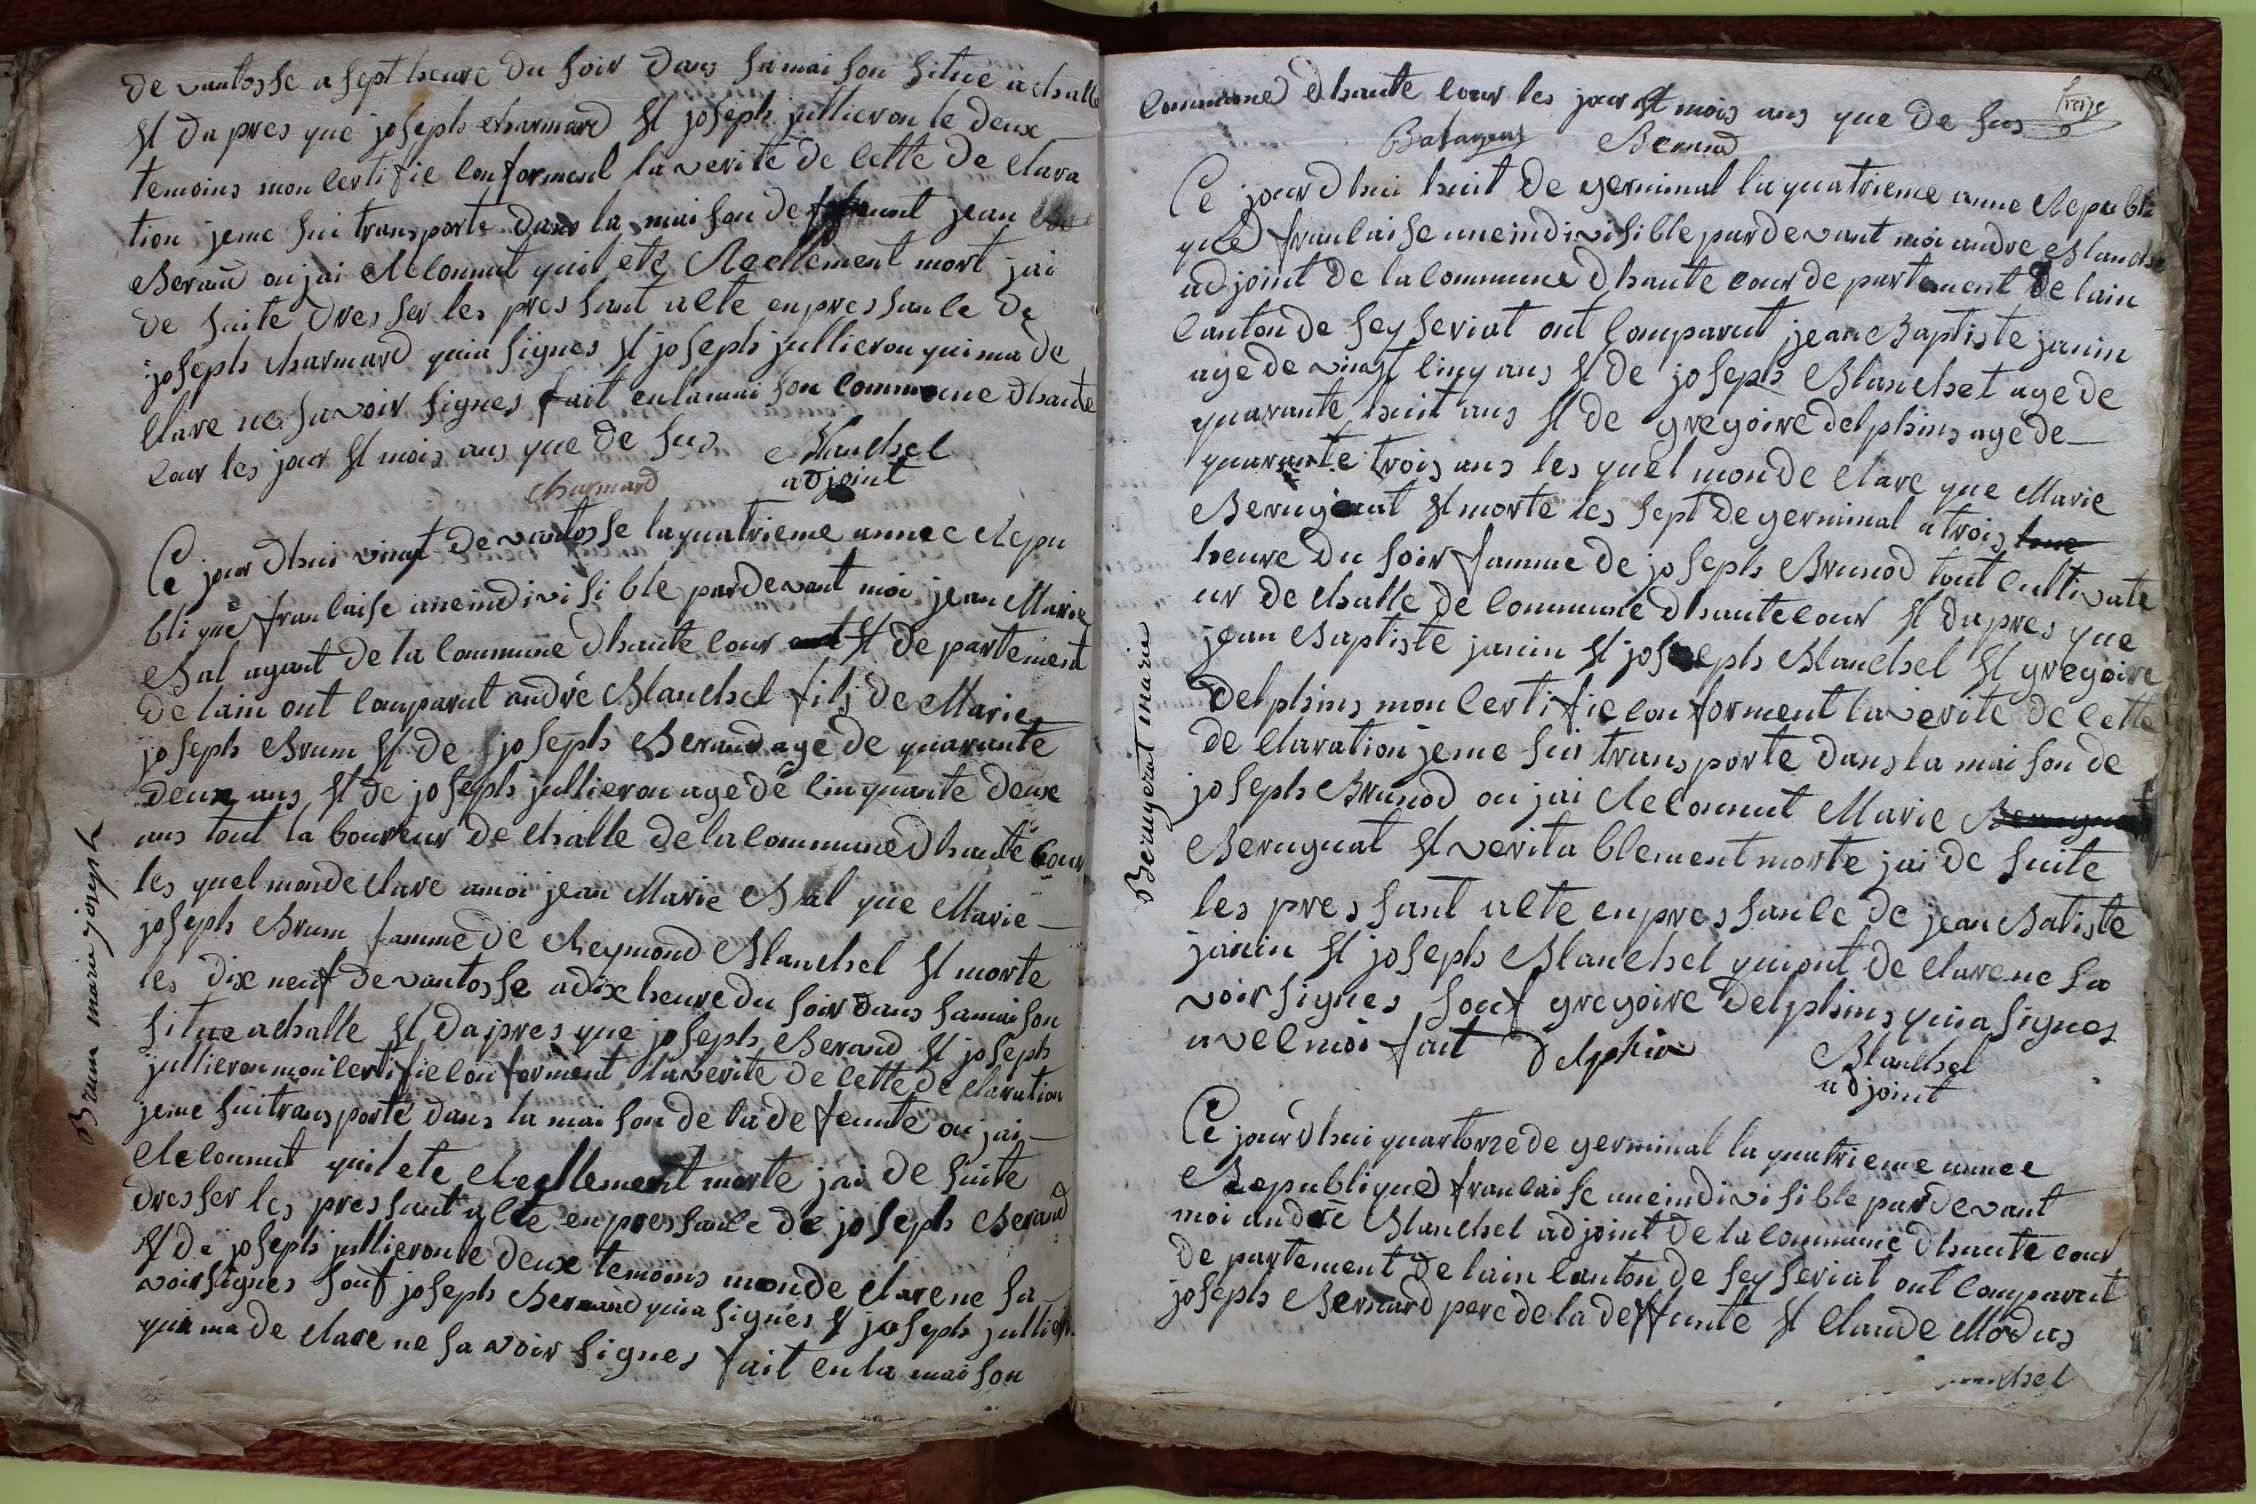 de vantosse a sept heure du soir dans sa maison situe a challe
et dapres que joseph charmard et joseph jullieron le deux
temoins mon certifie conforment la verite de cette de clara
tion jeme sui transporte dans la maison de feunt jean
Beraud ou jai Reconnut quil ete Reellement mort jai
de suite dresser les pressant acte en pressance de
joseph charmard quia signes et joseph jullieron quima de
clare ne savoir signes fait en la maison commune dhaute
cour les jour et mois ans que de sus
Blanchel
charmard adjoint
Ce jour dhui vingt de vantosse la quatrieme annee Repu
blique francaise uneindivisible pardevant moi jean Marie
Bal agant de la commune dhaute cour et departement
de lain ont comparut andré Blanchel fils de Marie
joseph Brum et de joseph Beraud age de quarante
deux ans et de joseph jullieron age de cinquante deux
ans tout la boureur de challe de la commune dhaute Cour
les quel monde clare amoi jean Marie Bal que Marie
joseph Brum famme de Reymond Blanchel et morte
les dix neuf de vantosse a dix heure du soir dans sa maison
situe a challe et dapres que joseph Beraud et joseph
jullieron mon certifie conforment la verite de cette de claration
jeme sui transporte dans la maison de la defeunte ou jai
Reconnut quil ete Reellement morte jai de suite
dresser les pressant acte en pressance de joseph Beraud
et de joseph jullieron le deux temoins monde clare ne sa
voir signes souf joseph Beraud quia signes et joseph jullier
qui ma de clare ne savoir signes fait en la maison
Brum marie joseph
treize
commune dhaute cour les jour et mois ans que de sus
Beraud
Ce jour dhui huit de germinal la quatrieme anne Republi
que francaise uneindivisible pardevant moi andre Blanchel
adjoint de la commune dhaute cour departement de lain
canton de seyseriat ont comparut jean Baptiste janin
age de vingt cinq ans et de joseph Blanchet age de
quarante huit ans et de gregoire delphins age de
quarante trois ans les quel monde clare que Marie
Berugnat et morte les sept de germinal a trois
heure du soir famme de joseph Brunod tout cultivate
ur de challe de commune dhaute cour et dapres que
jean Baptiste janin et joseph Blanchel et gregoire
delphins mon certifie conforment la verite de cette
de claration jeme sui transporte dans la maison de
joseph Brunod ou jai Reconnut Marie
Berugnat et verita blement morte jai de suite
les pressant acte en pressance de jean Batiste
janin et joseph Blanchel quiont de clare ne sa
voir signes souf gregoire delphins quia signes
avec moi fait Delphin
Blanchel
adjoint
Berugerat marie
Ce jour dhui quartorze de germinal la quatrieme annee
Republique francaise uneindivisible pardevant
moi andre Blanchel adjoint de la commune dhaute cour
departement de lain canton de seyseriat ont comparut
joseph Bernard pere de la deffunte et claude Modus